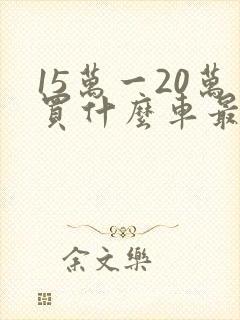 15萬一20萬
買什麼車最
余文樂